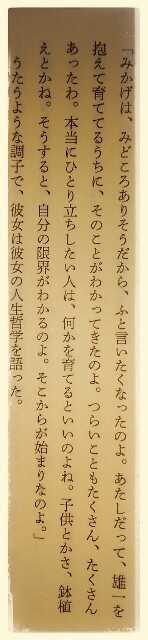 「みかげは、みどころありそうだから、ふと言いたくなったのよ。あたしだって、雄一を
抱えて育ててるうちに、そのことがわかってきたのよ。つらいこともたくさん、たくさん
あったわ。本当にひとり立ちしたい人は、何かを育てるといいのよね。子供とかさ、鉢植
えとかね。そうすると、自分の限界がわかるのよ。そこからが始まりなのよ。」
うたうような調子で、彼女は彼女の人生哲学を語った。